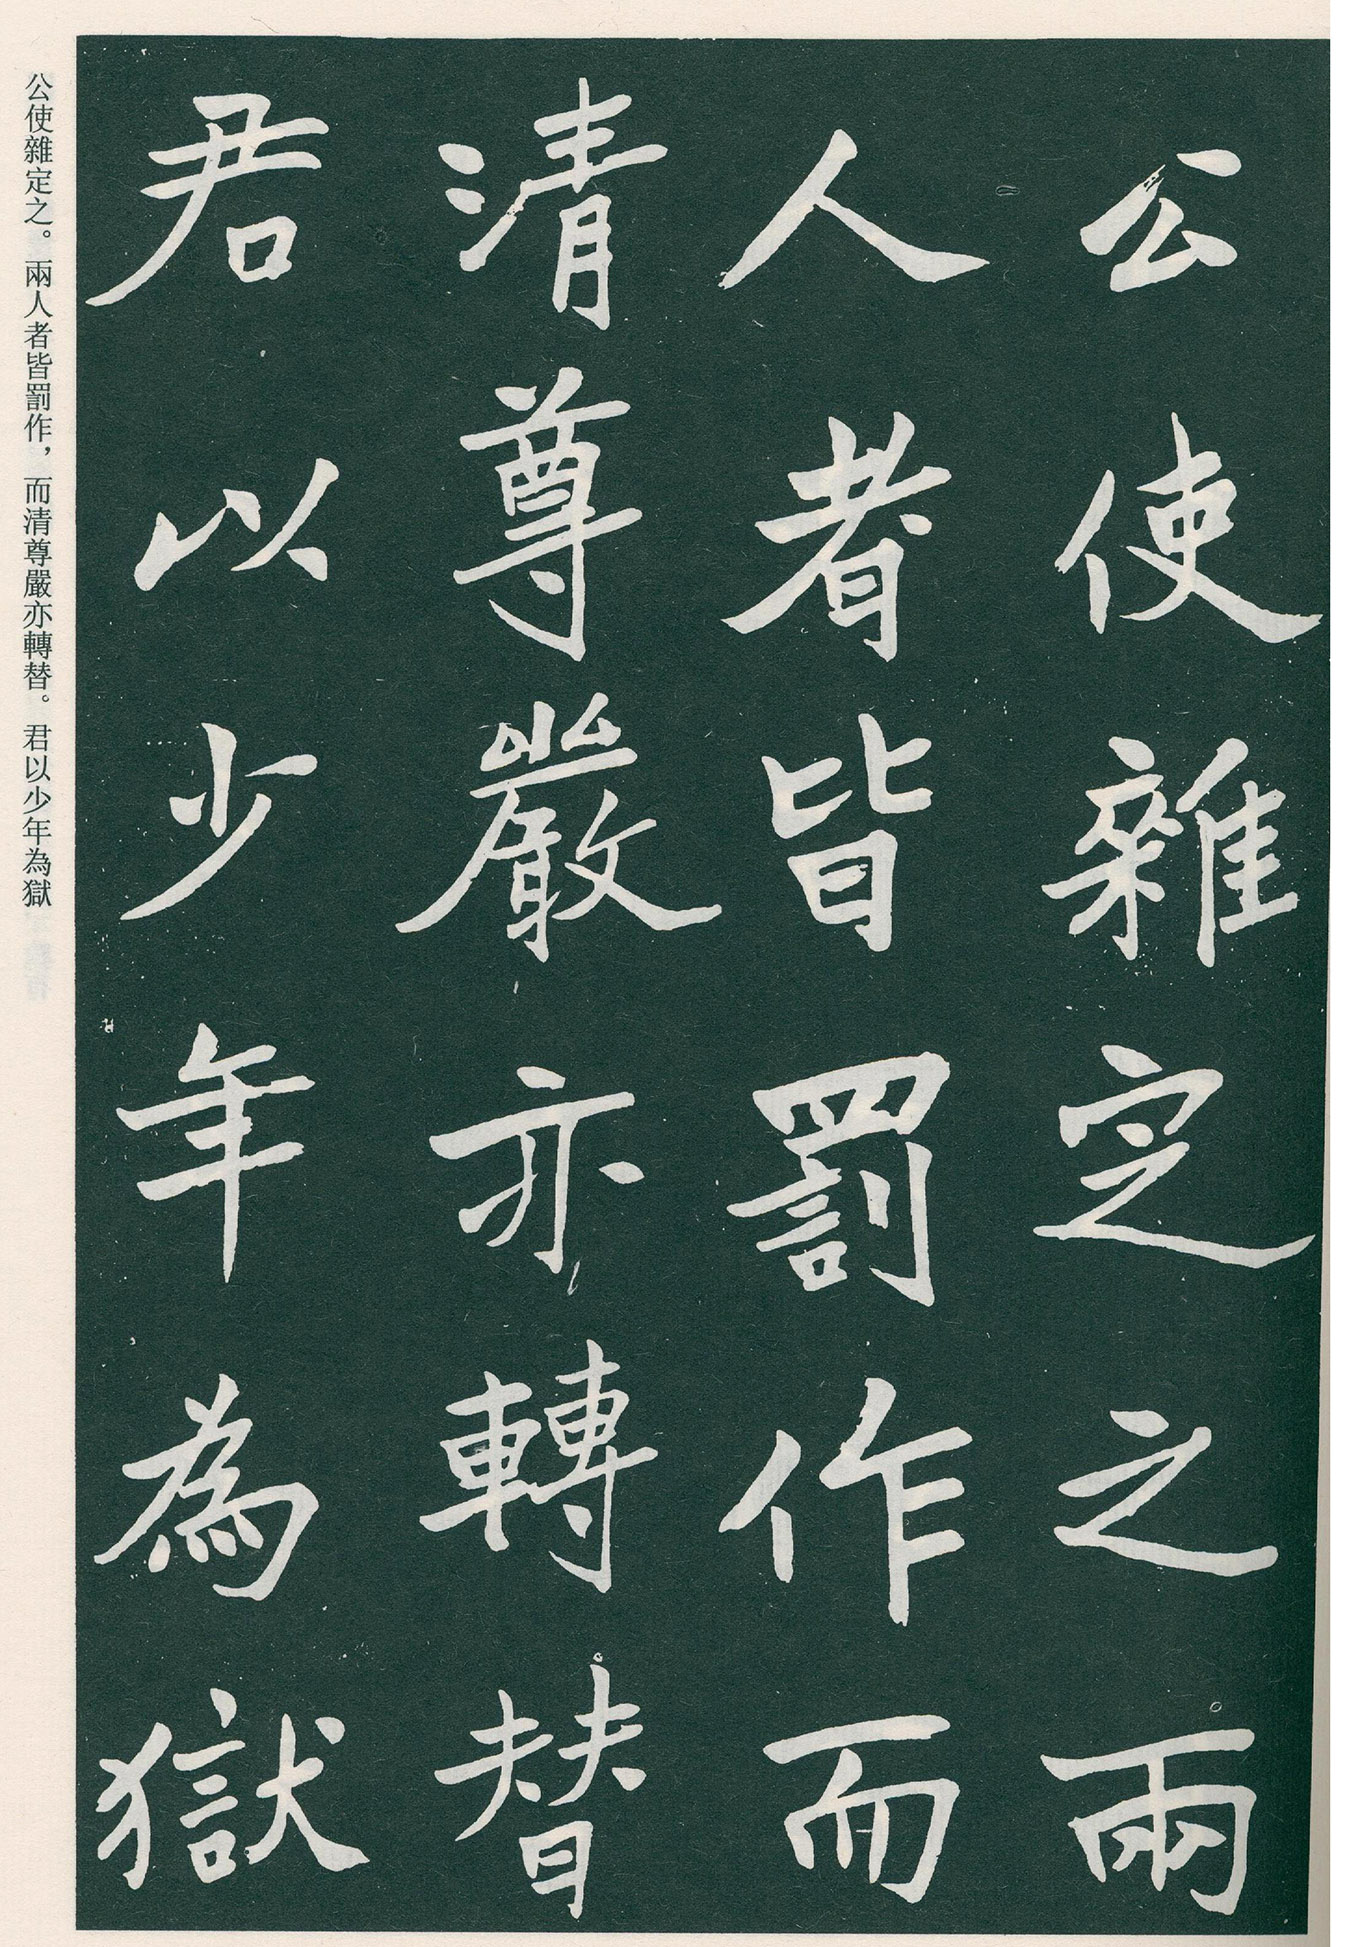 公使雜定之兩
人者皆罰作而
清尊嚴亦轉替
君以少年為獄
公使雜定之。兩人者皆罰作，而清尊嚴亦轉替。君以少年為獄